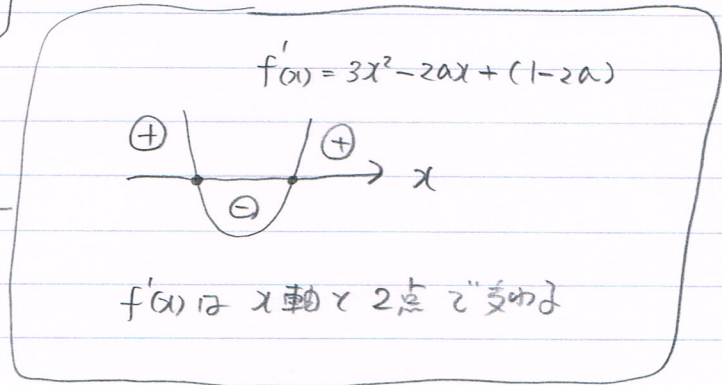 f'(x) = 3x² - 2ax + (1-2a)
⊕ ⊕
x
⊖
f'(x)は x軸と2点で交わる